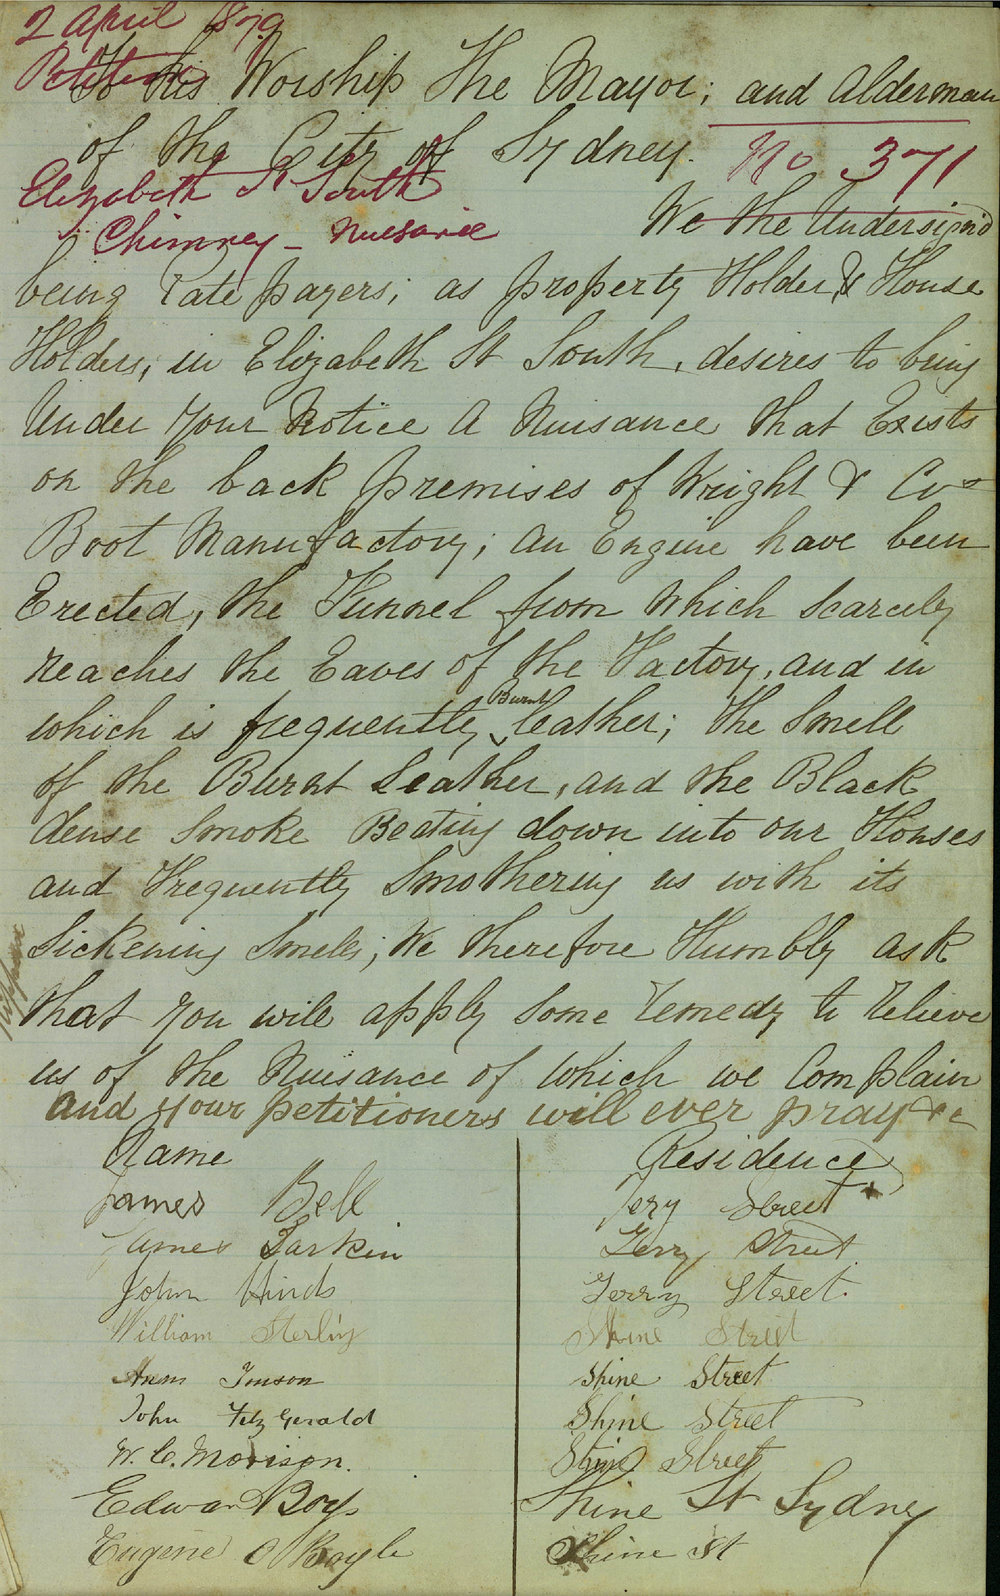 2 April 1879
Petition
To His Worship The Mayor; and Alderman
of the City of Sydney.
No 371
Elizabeth St South
Chimney - Nuisance
We the Undersignd
being rate payers; as property Holder & House
Holders, in Elizabeth St South, desires to bring
Under Your Notice A Nuisance that Exists
on the back premises of Wright & Co
Boot Manufactory; an Engine have been
Erected, the Funnel from which scarcely
reaches the Eaves of the Factory, and in
which is frequently Burnt leather; the Smell
of the Burnt Leather, and the Black
dense Smoke Beating down into our Houses
and Frequently Smothering us with its
Sickening Smells; We therefore Humbly ask
that You will apply Some remedy to relieve
us of the Nuisance of which we Complain
and your petitioners will ever pray &c
Name Residence
James Bell Tery Street
James Larkin Terry Street
John Hinds Terry Street.
William Sterling Shine Street
Shine Street
John FitzGerald Shine Street
W. C. Morison. Shine Street
Edward Boys Shine St Sydney
Eugene O Boyle Shine St